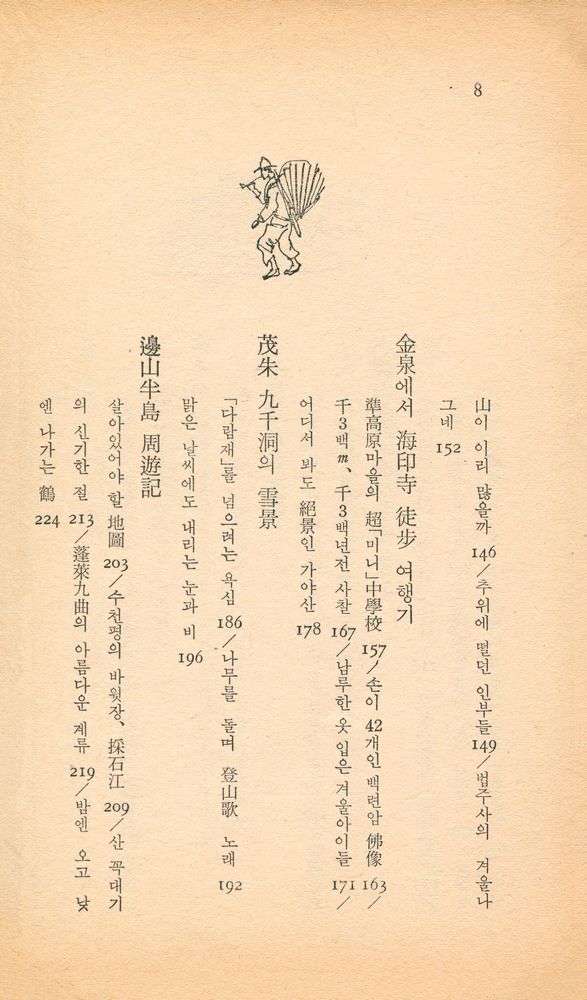 8
山이 이리 많을까 146／추위에 떨던 인부들 149／법주사의 겨울나
그네 152
金泉에서 海印寺 徒步 여행기
準高原마을의 超「미니」中學校 157／손이 42개인 백련암 佛像 163／
千3백m、千3백년전 사찰 167／남루한 옷 입은 겨울아이들 171／
어디서 봐도 絕景인 가야산 178
茂朱 九千洞의 雪景
「다람재」를 넘으려는 욕심 186／나무를 돌며 登山歌 노래 192
맑은 날씨에도 내리는 눈과 비 196
邊山半島 周遊記
살아있어야 할 地圖 203／수천평의 바윗장、採石江 209／산 꼭대기
의 신기한 절 213／蓬萊九曲의 아름다운 계류 219／밤엔 오고 낮
엔 나가는 鶴 224